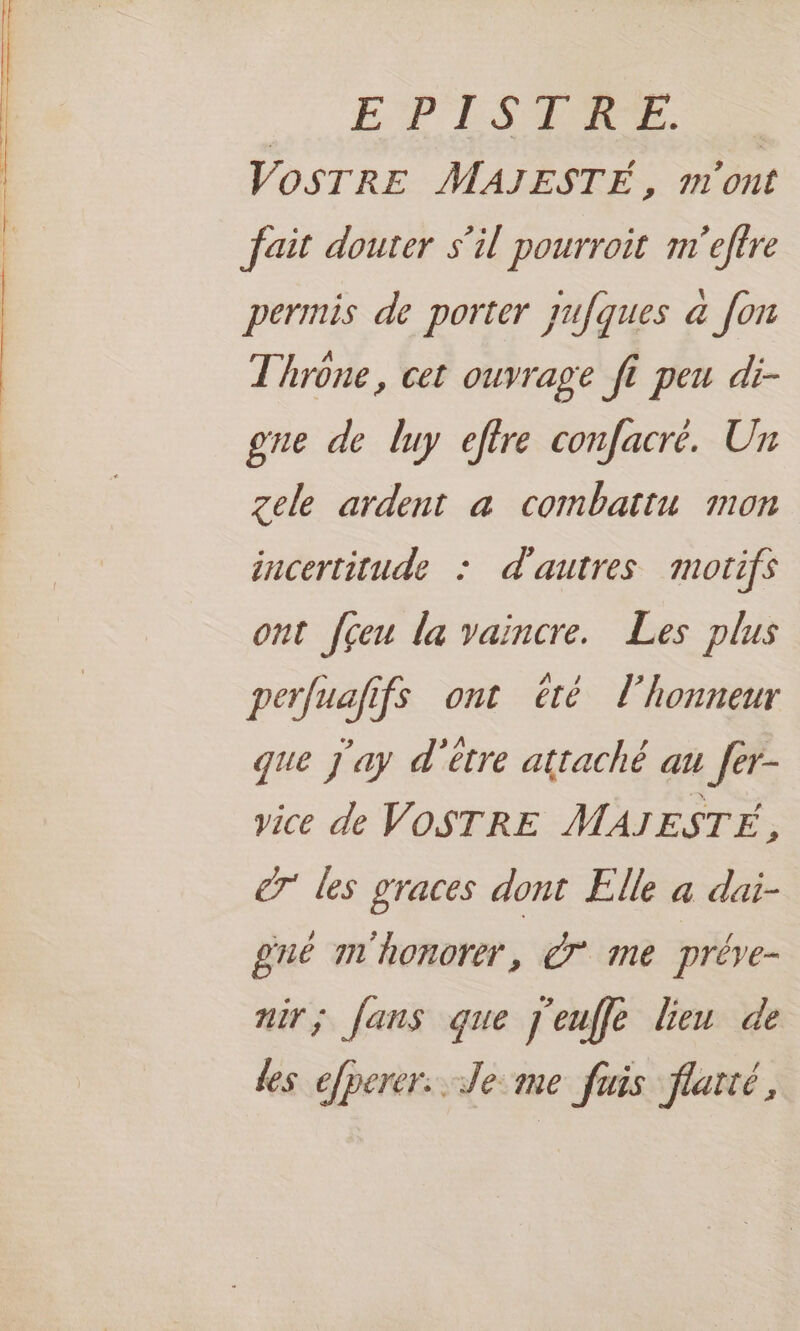 EPISTRE.
VOSTRE MAJESTÉ, m'ont
fait douter s'il pourroit m'eſtre
permis de porter juſques à ſon
Thrône, cet ouvrage ſi peu di-
gne de luy eſtre conſacré. Un
zele ardent a combattu mon
incertitude : d'autres motifs
ont ſçeu la vaincre. Les plus
perſuaſifs ont été l'honneur
que j'ay d'être attaché au ſer-
vice de VOSTRE MAJESTÉ,
& les graces dont Elle a dai-
gné m'honorer, & me préve-
nir; ſans que j'euſſe lieu de
les eſperer. Je me ſuis flatté,